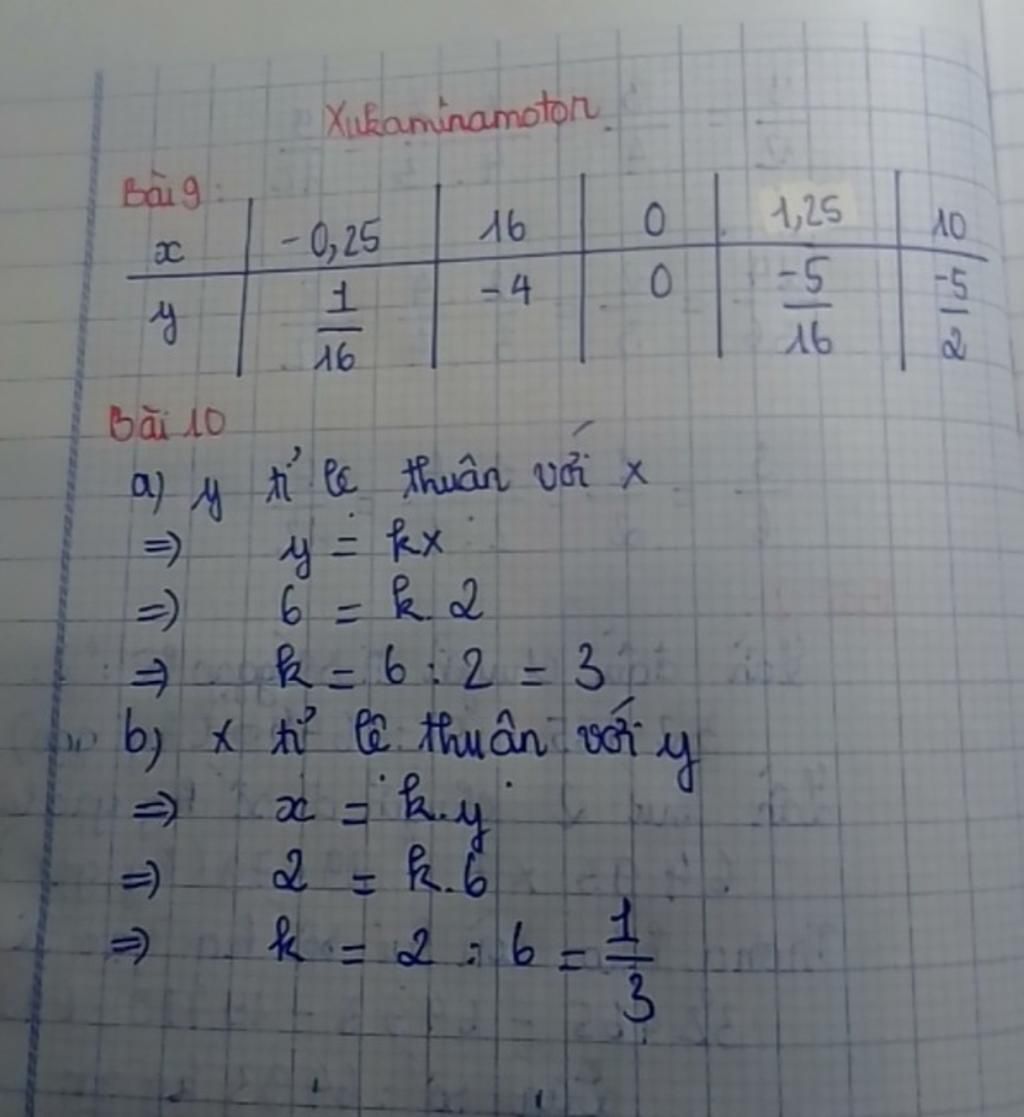 Xukaminamoton
Bài 9:
x | -0,25 | 16 | 0 | 1,25 | 10
y | 1/16 | -4 | 0 | -5/16 | -5/2
Bài 10
a) y tỉ lệ thuân với x
=> y = kx
=> 6 = k. 2
=> k = 6 : 2 = 3
b) x tỉ lệ thuân với y
=> x = k.y
=> 2 = k.6
=> k = 2 : 6 = 1/3